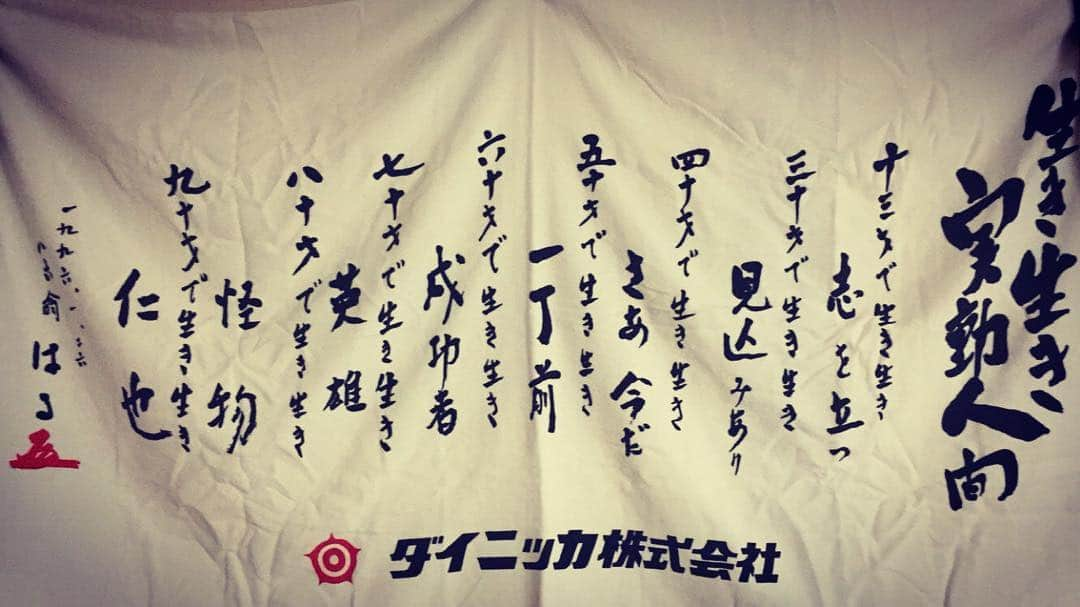 生き生き
実動人間
十三才で生き生き
志を立つ
三十才で生き生き
見込みあり
四十才で生き生き
さあ今だ
五十才で生き生き
一丁前
六十才で生き生き
成功者
七十才で生き生き
英雄
八十才で生き生き
怪物
九十才で生き生き
仁也
一九九六
はる
ダイニッカ株式会社